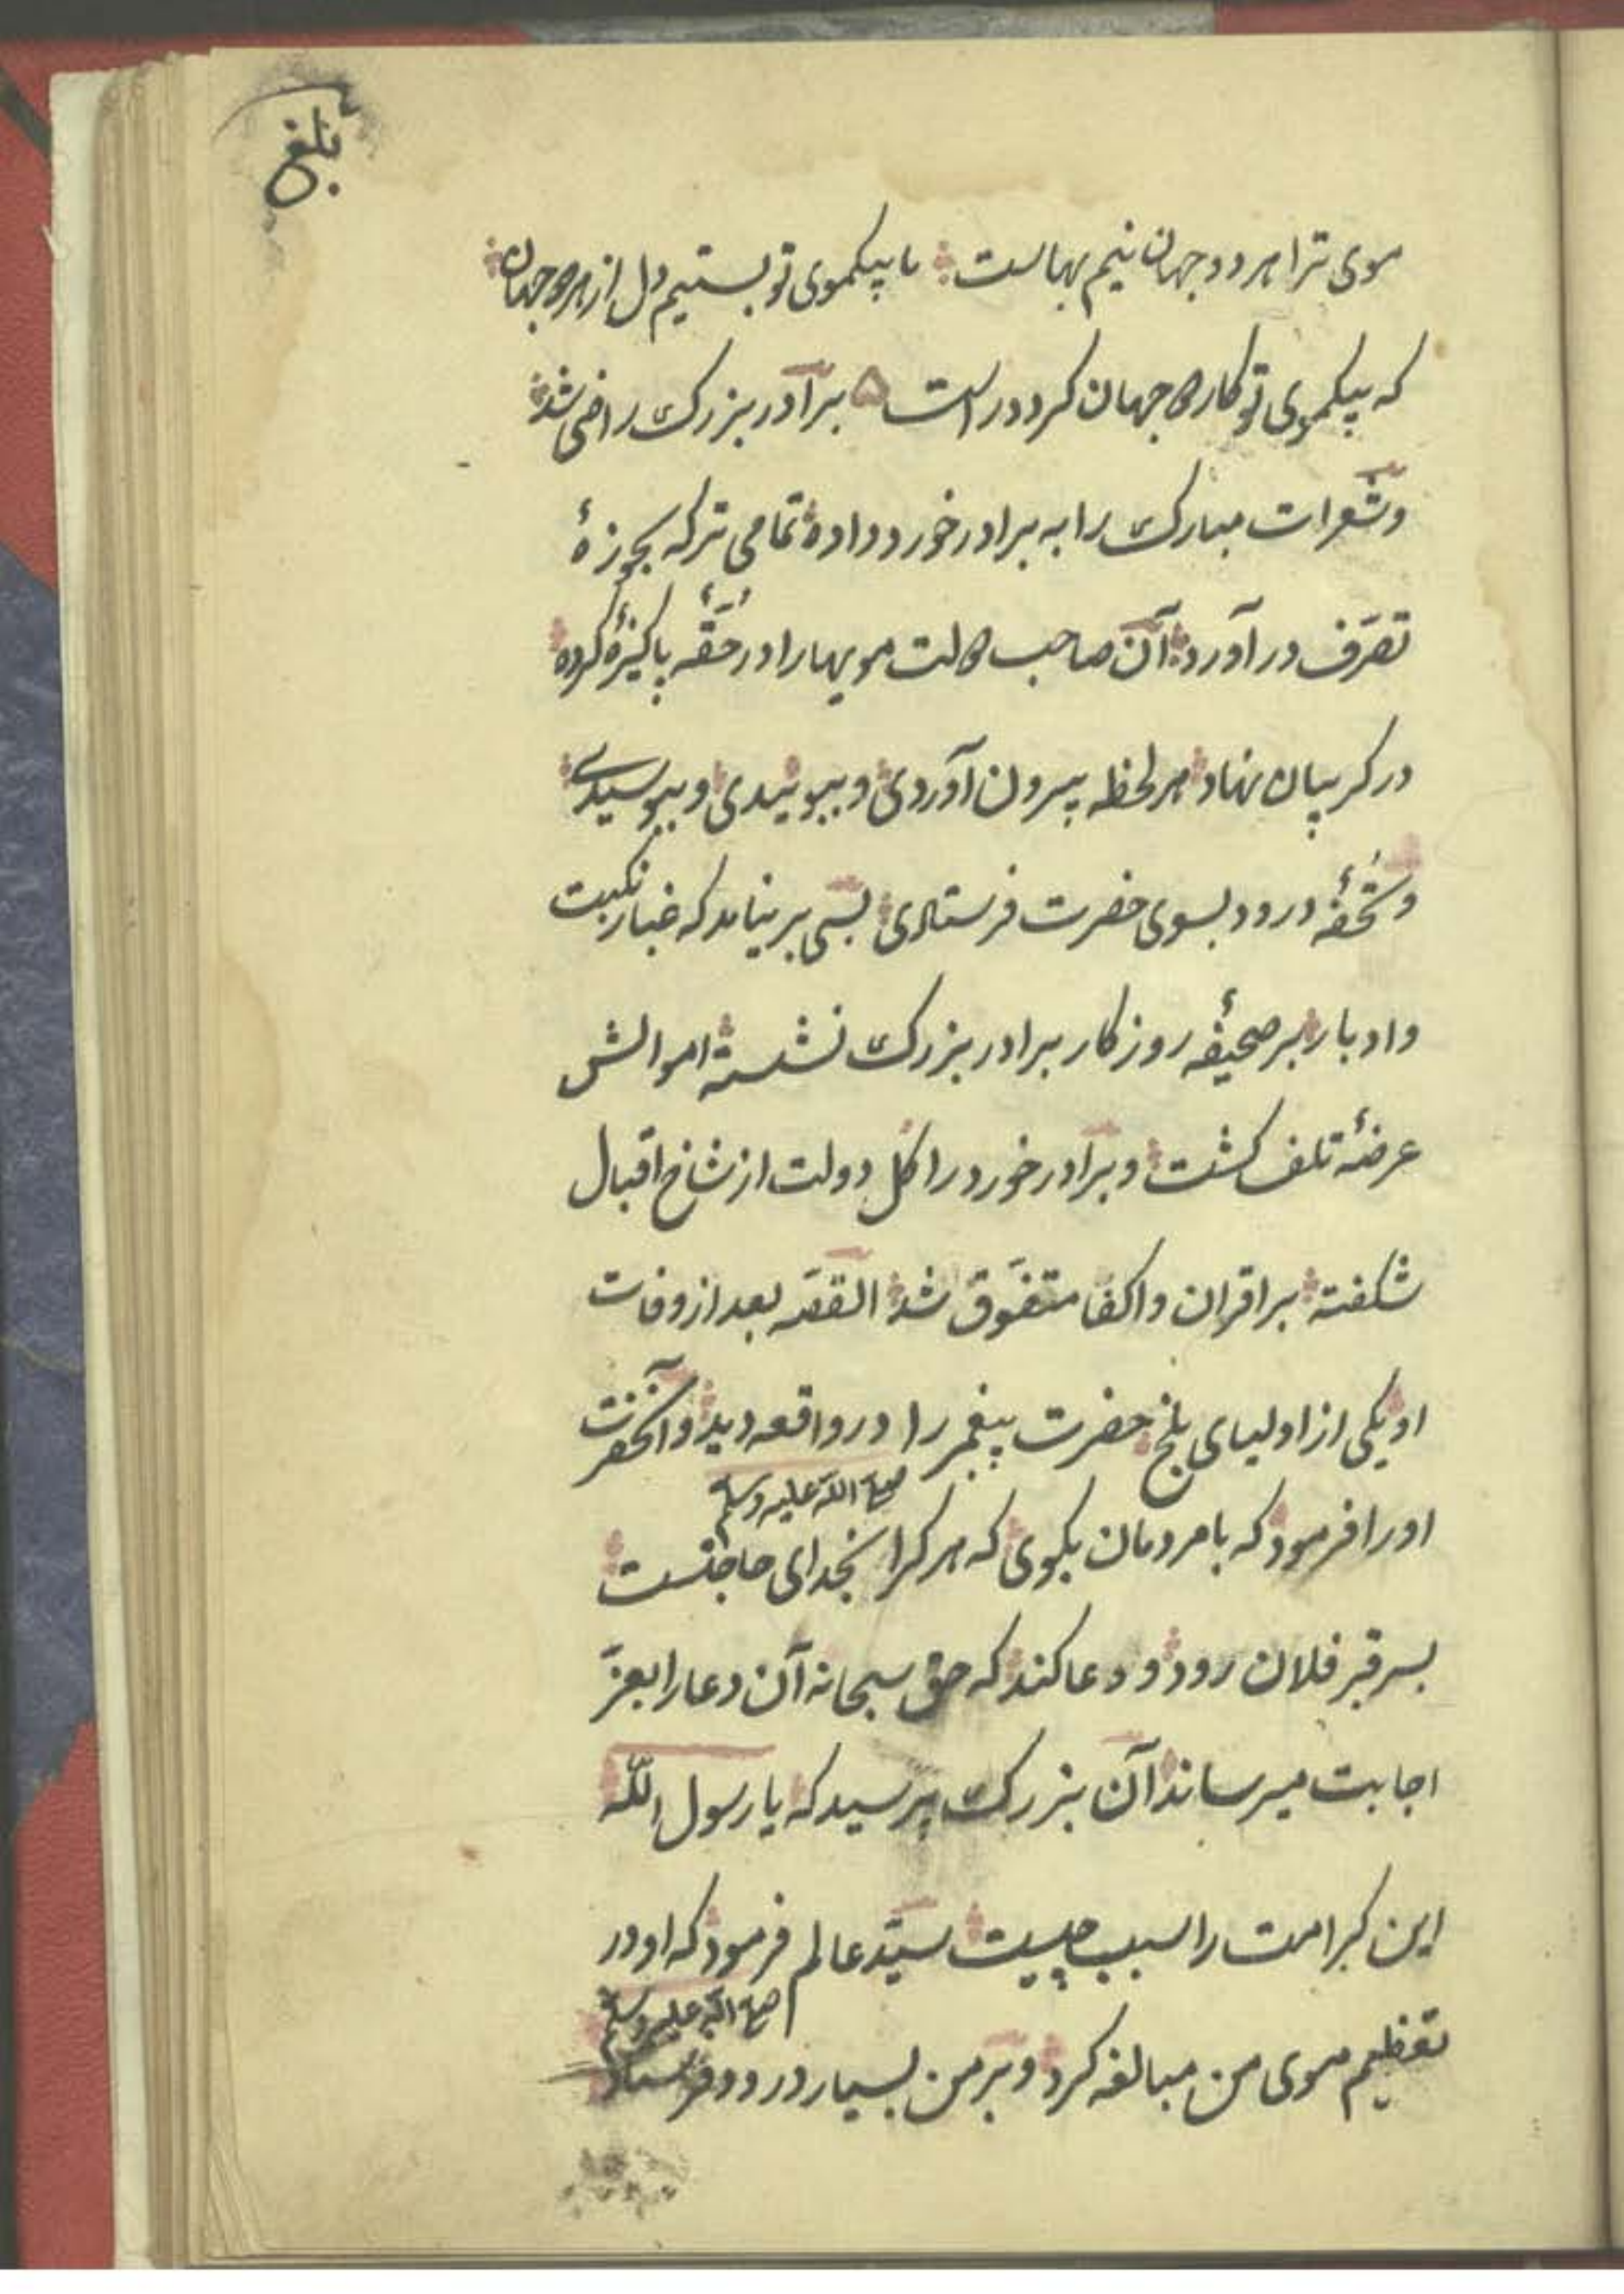 بلغ
موی ترا هر دو جهان نیم بهاست ما بیکموی تو بستیم دل از هر دو جهان
که بیکموی تو کار دو جهان کرد در است برادر بزرک راضی شد
وشعرات مبارک را به برادر خورد داده تمامی ترکه بحوزهٔ
تصرّف در آورد آن صاحب دولت مویهارا در حُقّهٔ پاکیزه کرده
در کریبان نهاد هر لحظه بیرون آوردی و ببوئیدی و ببوسیدی
و تُحفهٔ درود بسوی حضرت فرستادی بسی بر نیامد که غبار نکبت
وادبار بر صحیفهٔ روزکار برادر بزرک نشسته اموالش
عرضهٔ تلف کشت و برادر خورد را کل دولت از شاخ اقبال
شکفته بر اقران واکفا متفوّق شد القصّه بعد از وفات
او یکی از اولیای بلخ حضرت پیغمبر را در واقعه دید وآنحضرت
صلی الله علیه وسلم
اورا فرمود که با مردمان بکوی که هر کرا بخدای حاجتست
بسر قبر فلان رود و دعا کند که حق سبحانه آن دعا را بعزّ
اجابت میرساند آن بزرک پرسید که یا رسول اللّه
این کرامت را سبب چیست سیّد عالم فرمود که او در
صلی الله علیه وسلم
تعظیم موی من مبالغه کرد و بر من بسیار درود فرستاد